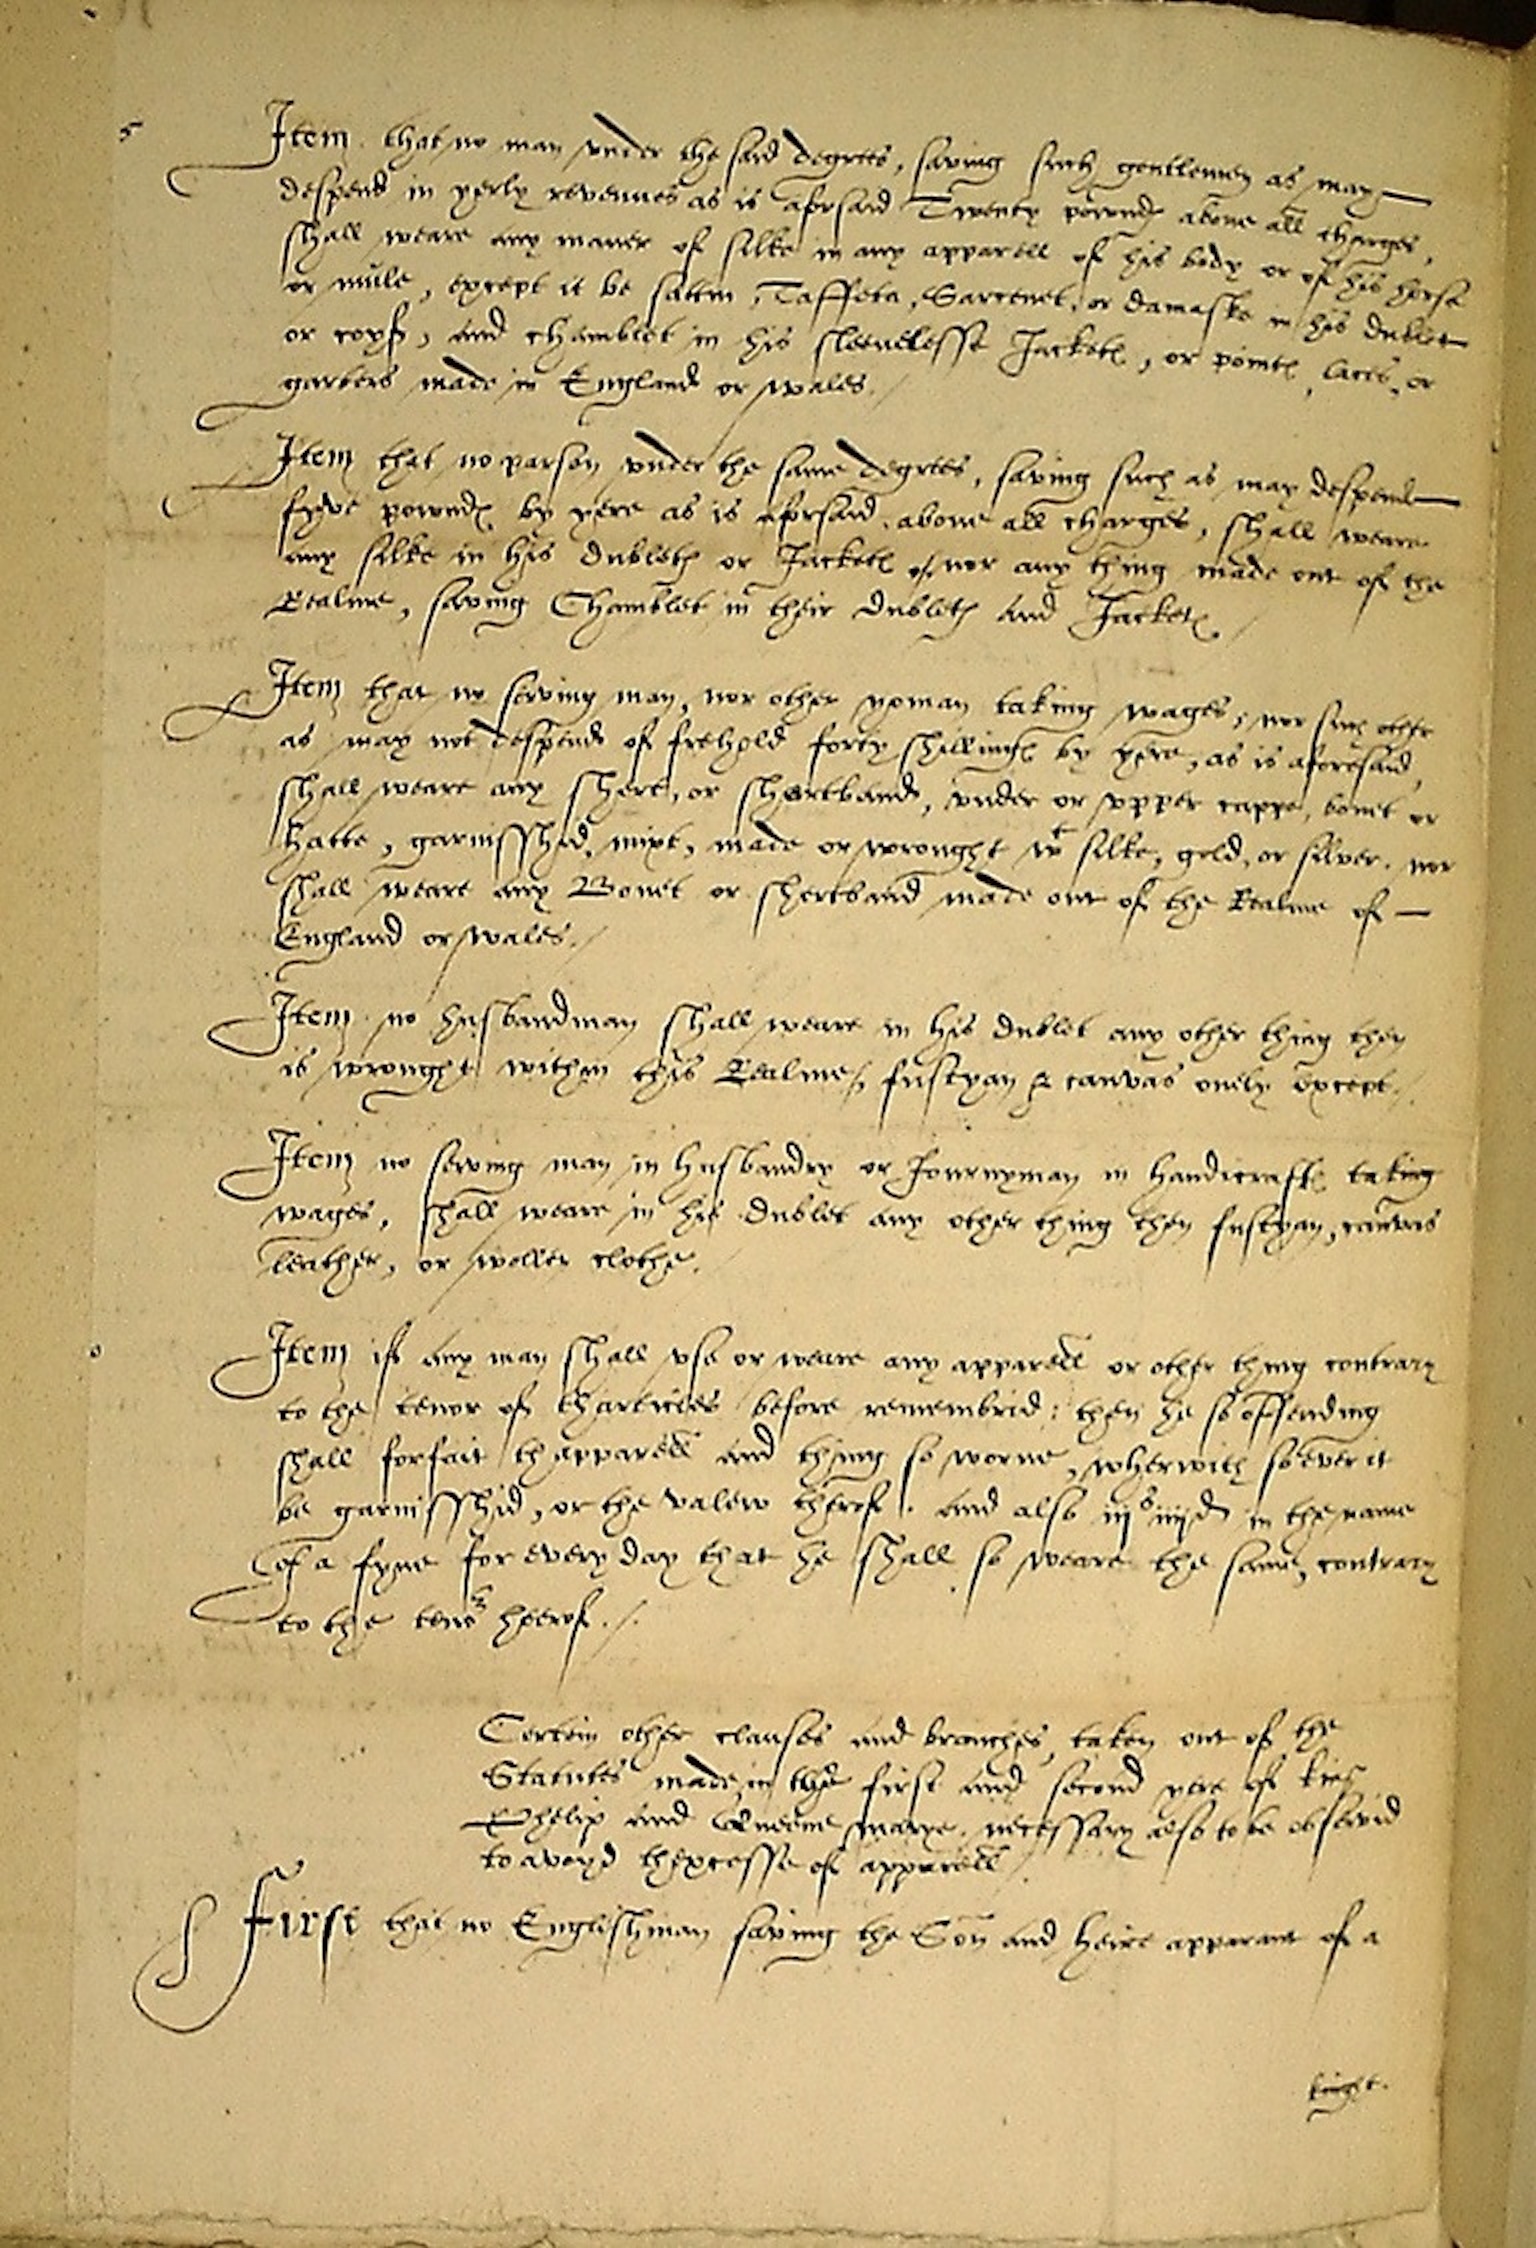 Item that no man vnder the said degrees, saving such gentlemen as may
despend in yerly revenues as is aforsaid Twenty pownds above all charges,
shall weare any maner of silke in any apparell of his body or of his horse
or mule, except it be sattin, Taffeta, Sarcenet, or damaske in his dublet
or coyfs, and chamblet in his sleevelesse Jackets, or points, laces, or
garters made in England or wales.
Item that no parson vnder the same degrees, saving such as may despend
fyve pownds by yere as is aforsaid above all charges, shall weare
any silke in his dublets or Jackets, nor any thing made out of the
Realme, saving Chamblet in their dublets and Jackets.
Item that no serving man, nor other yoman taking wages, nor such other
as may not despend of freehold forty shillings by yere, as is aforesaid,
shall weare any shert, or shertband, vnder or vpper cappe, bonet or
hatte, garnisshed, mixt, made or wrought wt silke, gold, or silver. nor
shall weare any Bonet or shertband made out of the Realme of
England or wales.
Item no husbandman shall weare in his dublet any other thing then
is wrought within this Realme, fustyan & canvas onely except.
Item no serving man in husbandry or Journyman in handicrafts taking
wages, shall weare in his dublet any other thing then fustyan, canvas
leather, or wollen clothe.
Item if any man shall vse or weare any apparell or other thing contrary
to the tenor of tharticles before remembrid: then he so offending
shall forfait thapparell and thing so worne, wherwith so ever it
be garnisshid, or the valew therof. And also iijs iiijd in the name
of a fyne for every day that he shall so weare the same, contrary
to the tenor heerof.
Certein other clauses and branches, taken out of the
Statutes made in the first and second yere of king
Phelip and Queene marye. necessary also to be observid
to avoyd thexcesse of apparell
First that no Englishman saving the Son and heire apparant of a
knight.